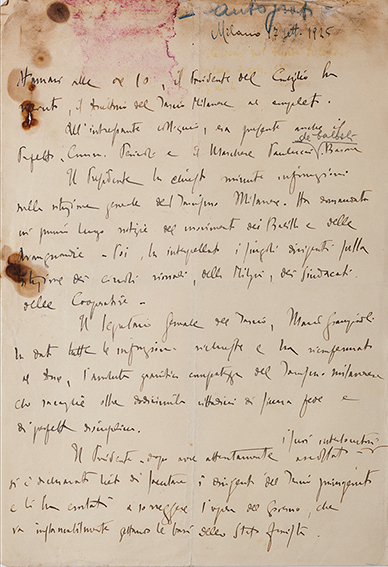 autografo
Milano 17 sett. 1925
Stamani alle ore 10, il Presidente del Consiglio ha
ricevuto, il Direttorio del Fascio Milanese al completo.
All'interessante colloquio, era presente anche il
Prefetto. Comm. Pericoli e il Marchese Paulucci de Calboli Barone
Il Presidente ha chiesto minute informazioni
sulla situazione generale del Fascismo Milanese. Ha domandato
in primo luogo notizie dei movimenti dei Balilla e delle
Avanguardie - Poi, ha interpellato i singoli dirigenti sulla
situazione dei circoli rionali, della Milizia, dei Sindacati
delle Cooperative -
Il Segretario Generale del Fascio, Mario Giampaoli
ha dato tutte le informazioni richieste e ha riconfermato
al Duce, l'assoluta granitica compattezza del Fascismo milanese
che raccoglie oltre dodicimila cittadini di sicura fede e
di perfetta disciplina.
Il Presidente - dopo avere attentamente ascoltato i suoi interlocutori -
si è dichiarato lieto di i dirigenti del Fascio primogenito
e li ha esortati a sorreggere l'opera del Governo, che
va gettando le basi dello Stato fascista.